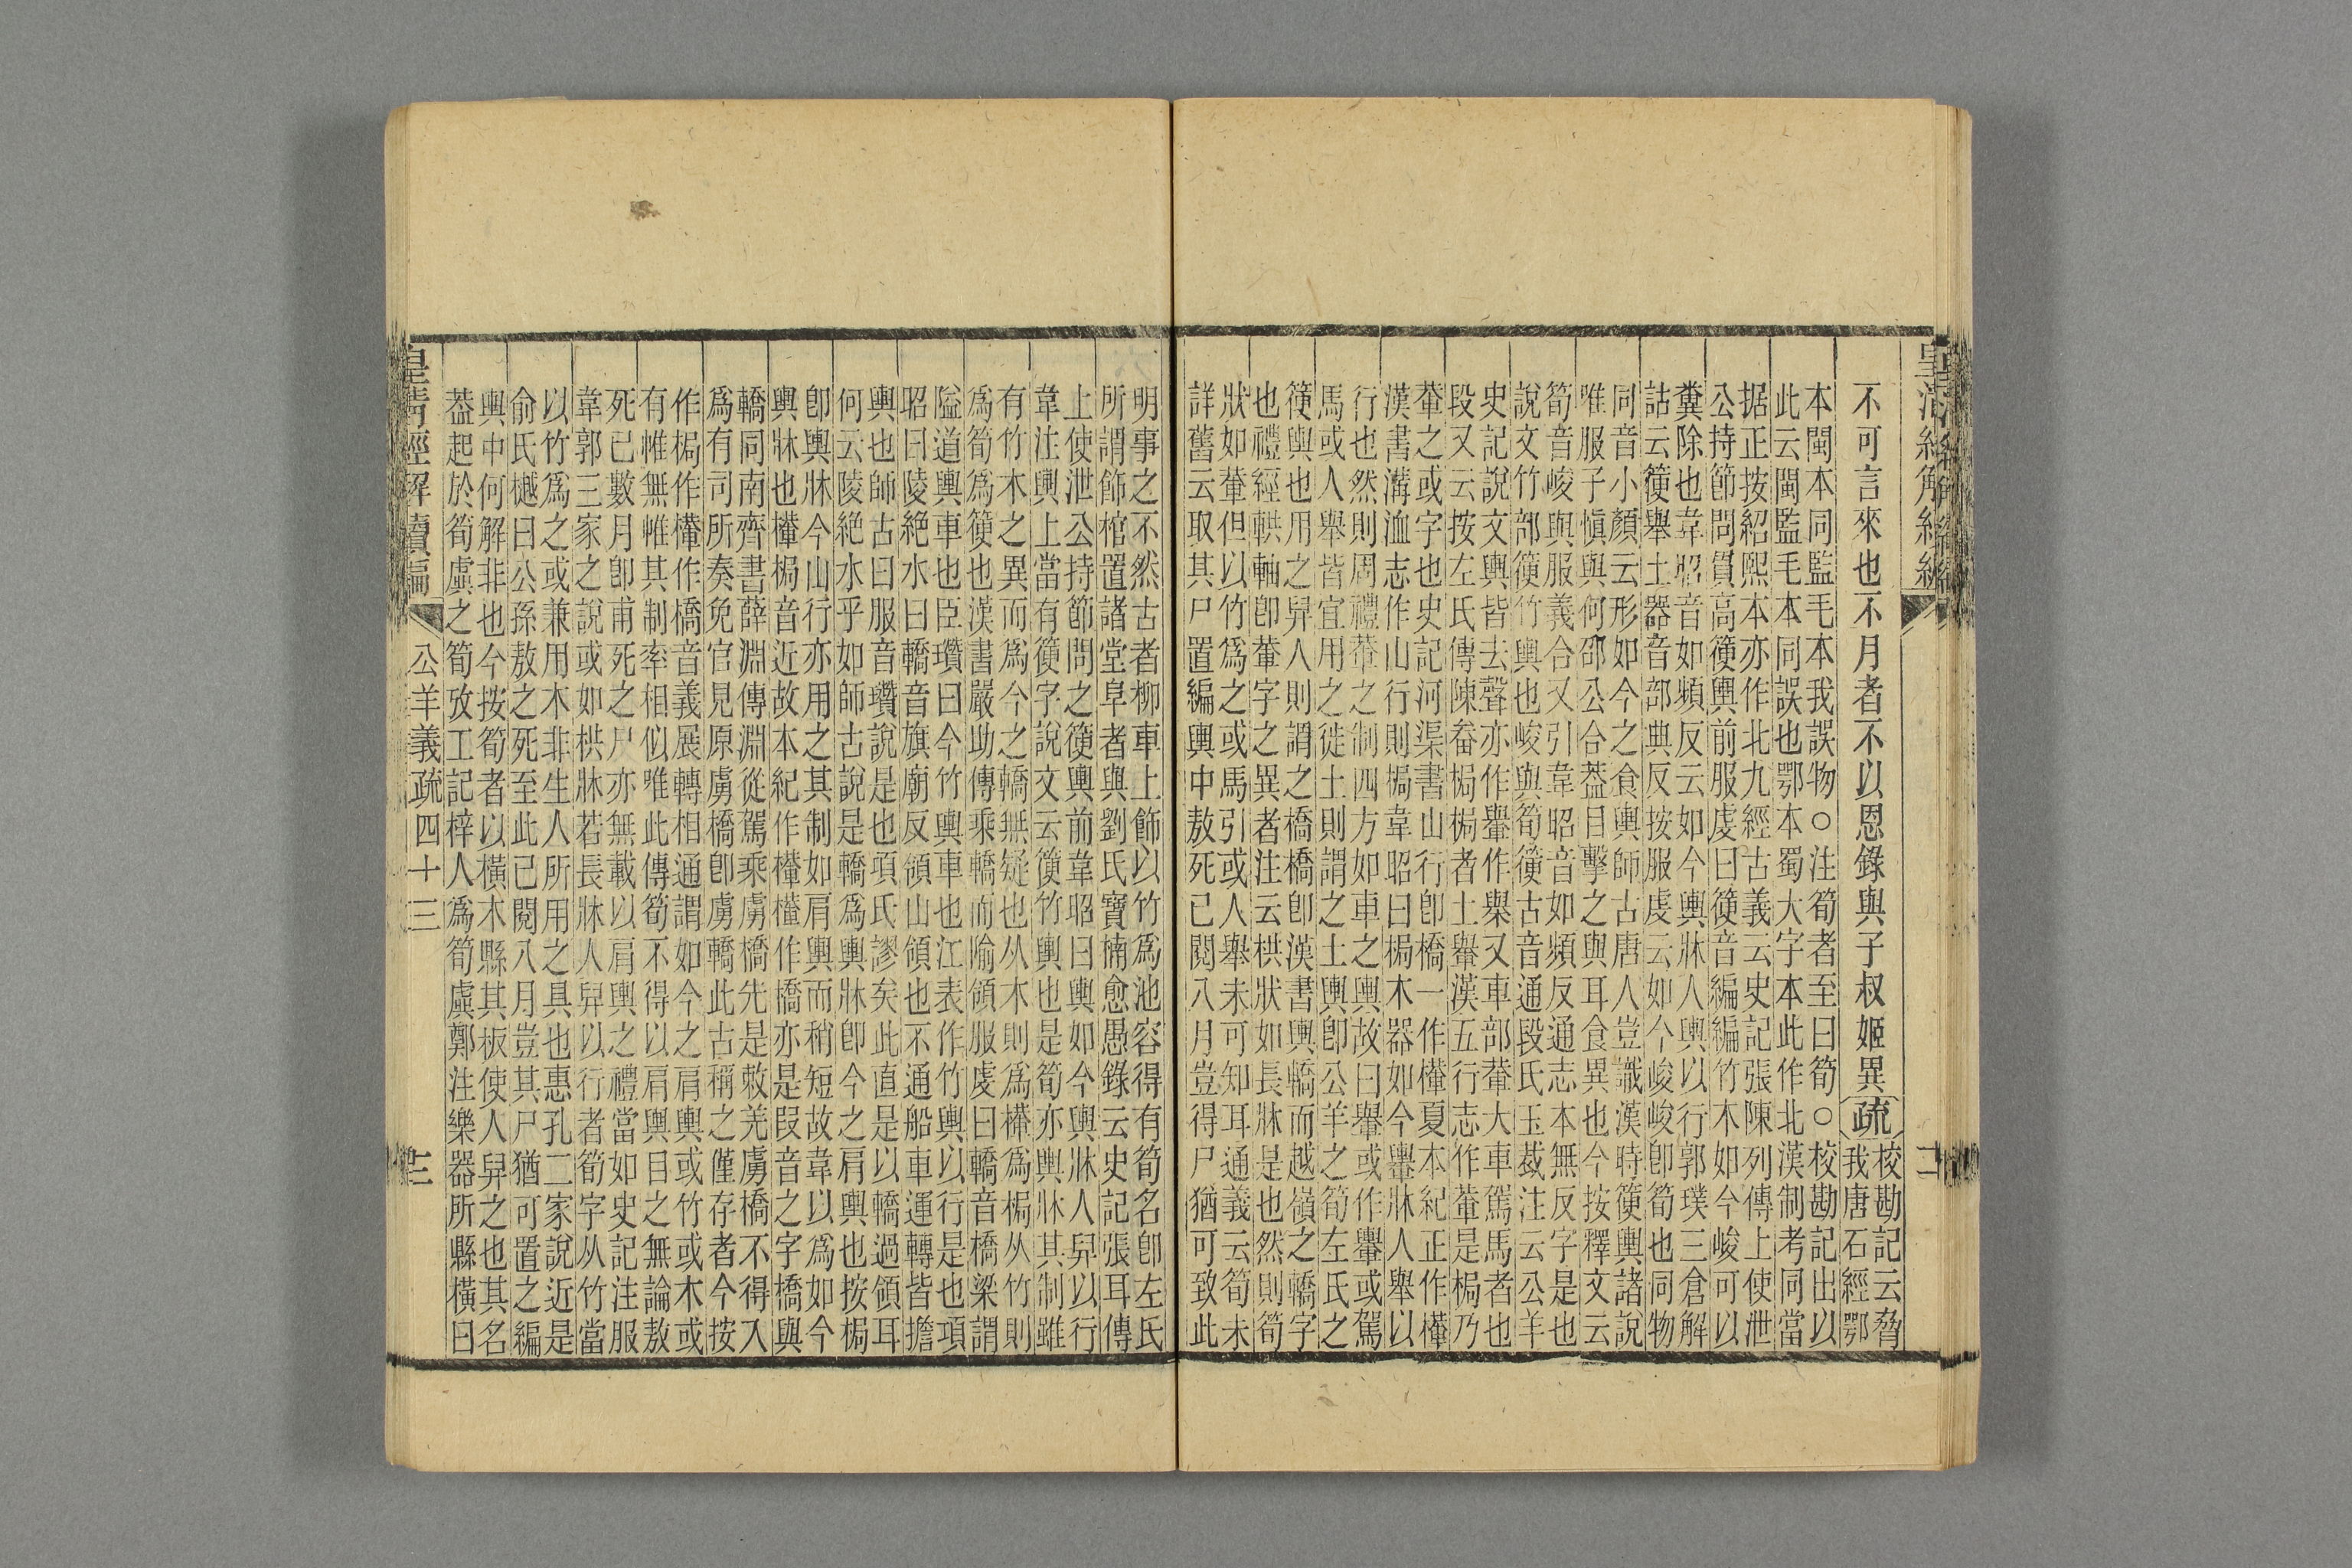 不可言來也不月者不以恩錄與子叔姬異疏校勘記云脅
我唐石經鄂
本閩本同監毛本我誤物○注筍者至曰筍○校勘記出以
此云閩監毛本同誤也鄂本蜀大字本此作北漢制考同當
据正按紹熙本亦作北九經古義云史記張陳列傳上使泄
公持節問貫高箯輿前服虔曰箯音編編竹木如今峻可以
糞除也韋昭音如頻反云如今輿牀人輿以行郭璞三倉解
詁云箯舉土器音部典反按服虔云如今峻峻卽筍也同物
同音小顏云形如今之食輿師古唐人豈識漢時箯輿諸說
唯服子愼與何邵公合葢目擊之與耳食異也今按釋文云
筍音峻與服義合又引韋昭音如頻反通志本無反字是也
說文竹部箯竹輿也峻與筍箯古音通段氏玉裁注云公羊
史記說文輿皆去聲亦作轝作轝又車部䡞大車駕馬者也
段又云按左氏傳陳畚梮梮者土轝漢五行志作䡞是梮乃
䡞之或字也史記河渠書山行卽橋一作檋夏本紀正作檋
漢書溝洫志作山行則梮韋昭曰梮木器如今轝牀人舉以
行也然則周禮䡞之制四方如車之輿故曰轝或作轝或駕
馬或人舉皆宜用之徙土則謂之土輿卽公羊之筍左氏之
箯輿也用之舁人則謂之橋橋卽漢書輿轎而越嶺之轎字
也禮經輁軸卽䡞字之異者注云栱狀如長牀是也然則筍
狀如䡞但以竹爲之或馬引或人舉未可知耳通義云筍未
詳舊云取其尸置編輿中敖死已閱八月豈得尸猶可致此
明事之不然古者柳車上飾以竹爲池容得有筍名卽左氏
所謂飾棺置諸堂阜者與劉氏寶楠愈愚錄云史記張耳傳
上使泄公持節問之箯輿前韋昭曰輿如今輿牀人舁以行
韋注輿上當有箯字說文云箯竹輿也是筍亦輿牀其制雖
有竹木之異而爲今之轎無疑也从木則爲檋爲梮从竹則
爲筍爲箯也漢書嚴助傳乘轎而隃領服虔曰轎音橋梁謂
隘道輿車也臣瓚曰今竹輿車也江表作竹輿以行是也項
昭曰陵絶水曰轎音旗廟反領山領也不通船車運轉皆擔
輿也師古曰服音瓚說是也項氏謬矣此直是以轎過領耳
何云陵絶水乎如師古說是轎爲輿牀卽今之肩輿也按梮
卽輿牀今山行亦用之其制如肩輿而稍短故韋以爲如今
輿牀也檋梮音近故本紀作檋檋作橋亦是叚音之字橋與
轎同南齊書薛淵傳淵從駕乘虜橋先是敕羌虜橋不得入
爲有司所奏免官見原虜橋卽虜轎此古稱之僅存者今按
作梮作檋作橋音義展轉相通謂如今之肩輿或竹或木或
有帷無帷其制率相似唯此傳筍不得以肩輿目之無論敖
死已數月卽甫死之尸亦無載以肩輿之禮當如史記注服
韋郭三家之說或如栱牀若長牀人舁以行者筍字从竹當
以竹爲之或兼用木非生人所用之具也惠孔二家說近是
俞氏樾曰公孫敖之死至此已閱八月豈其尸猶可置之編
輿中何解非也今按筍者以橫木縣其板使人舁之也其名
葢起於筍虡之筍攷工記梓人爲筍虡鄭注樂器所縣橫曰
皇清經解續編
公羊義疏四十三
三